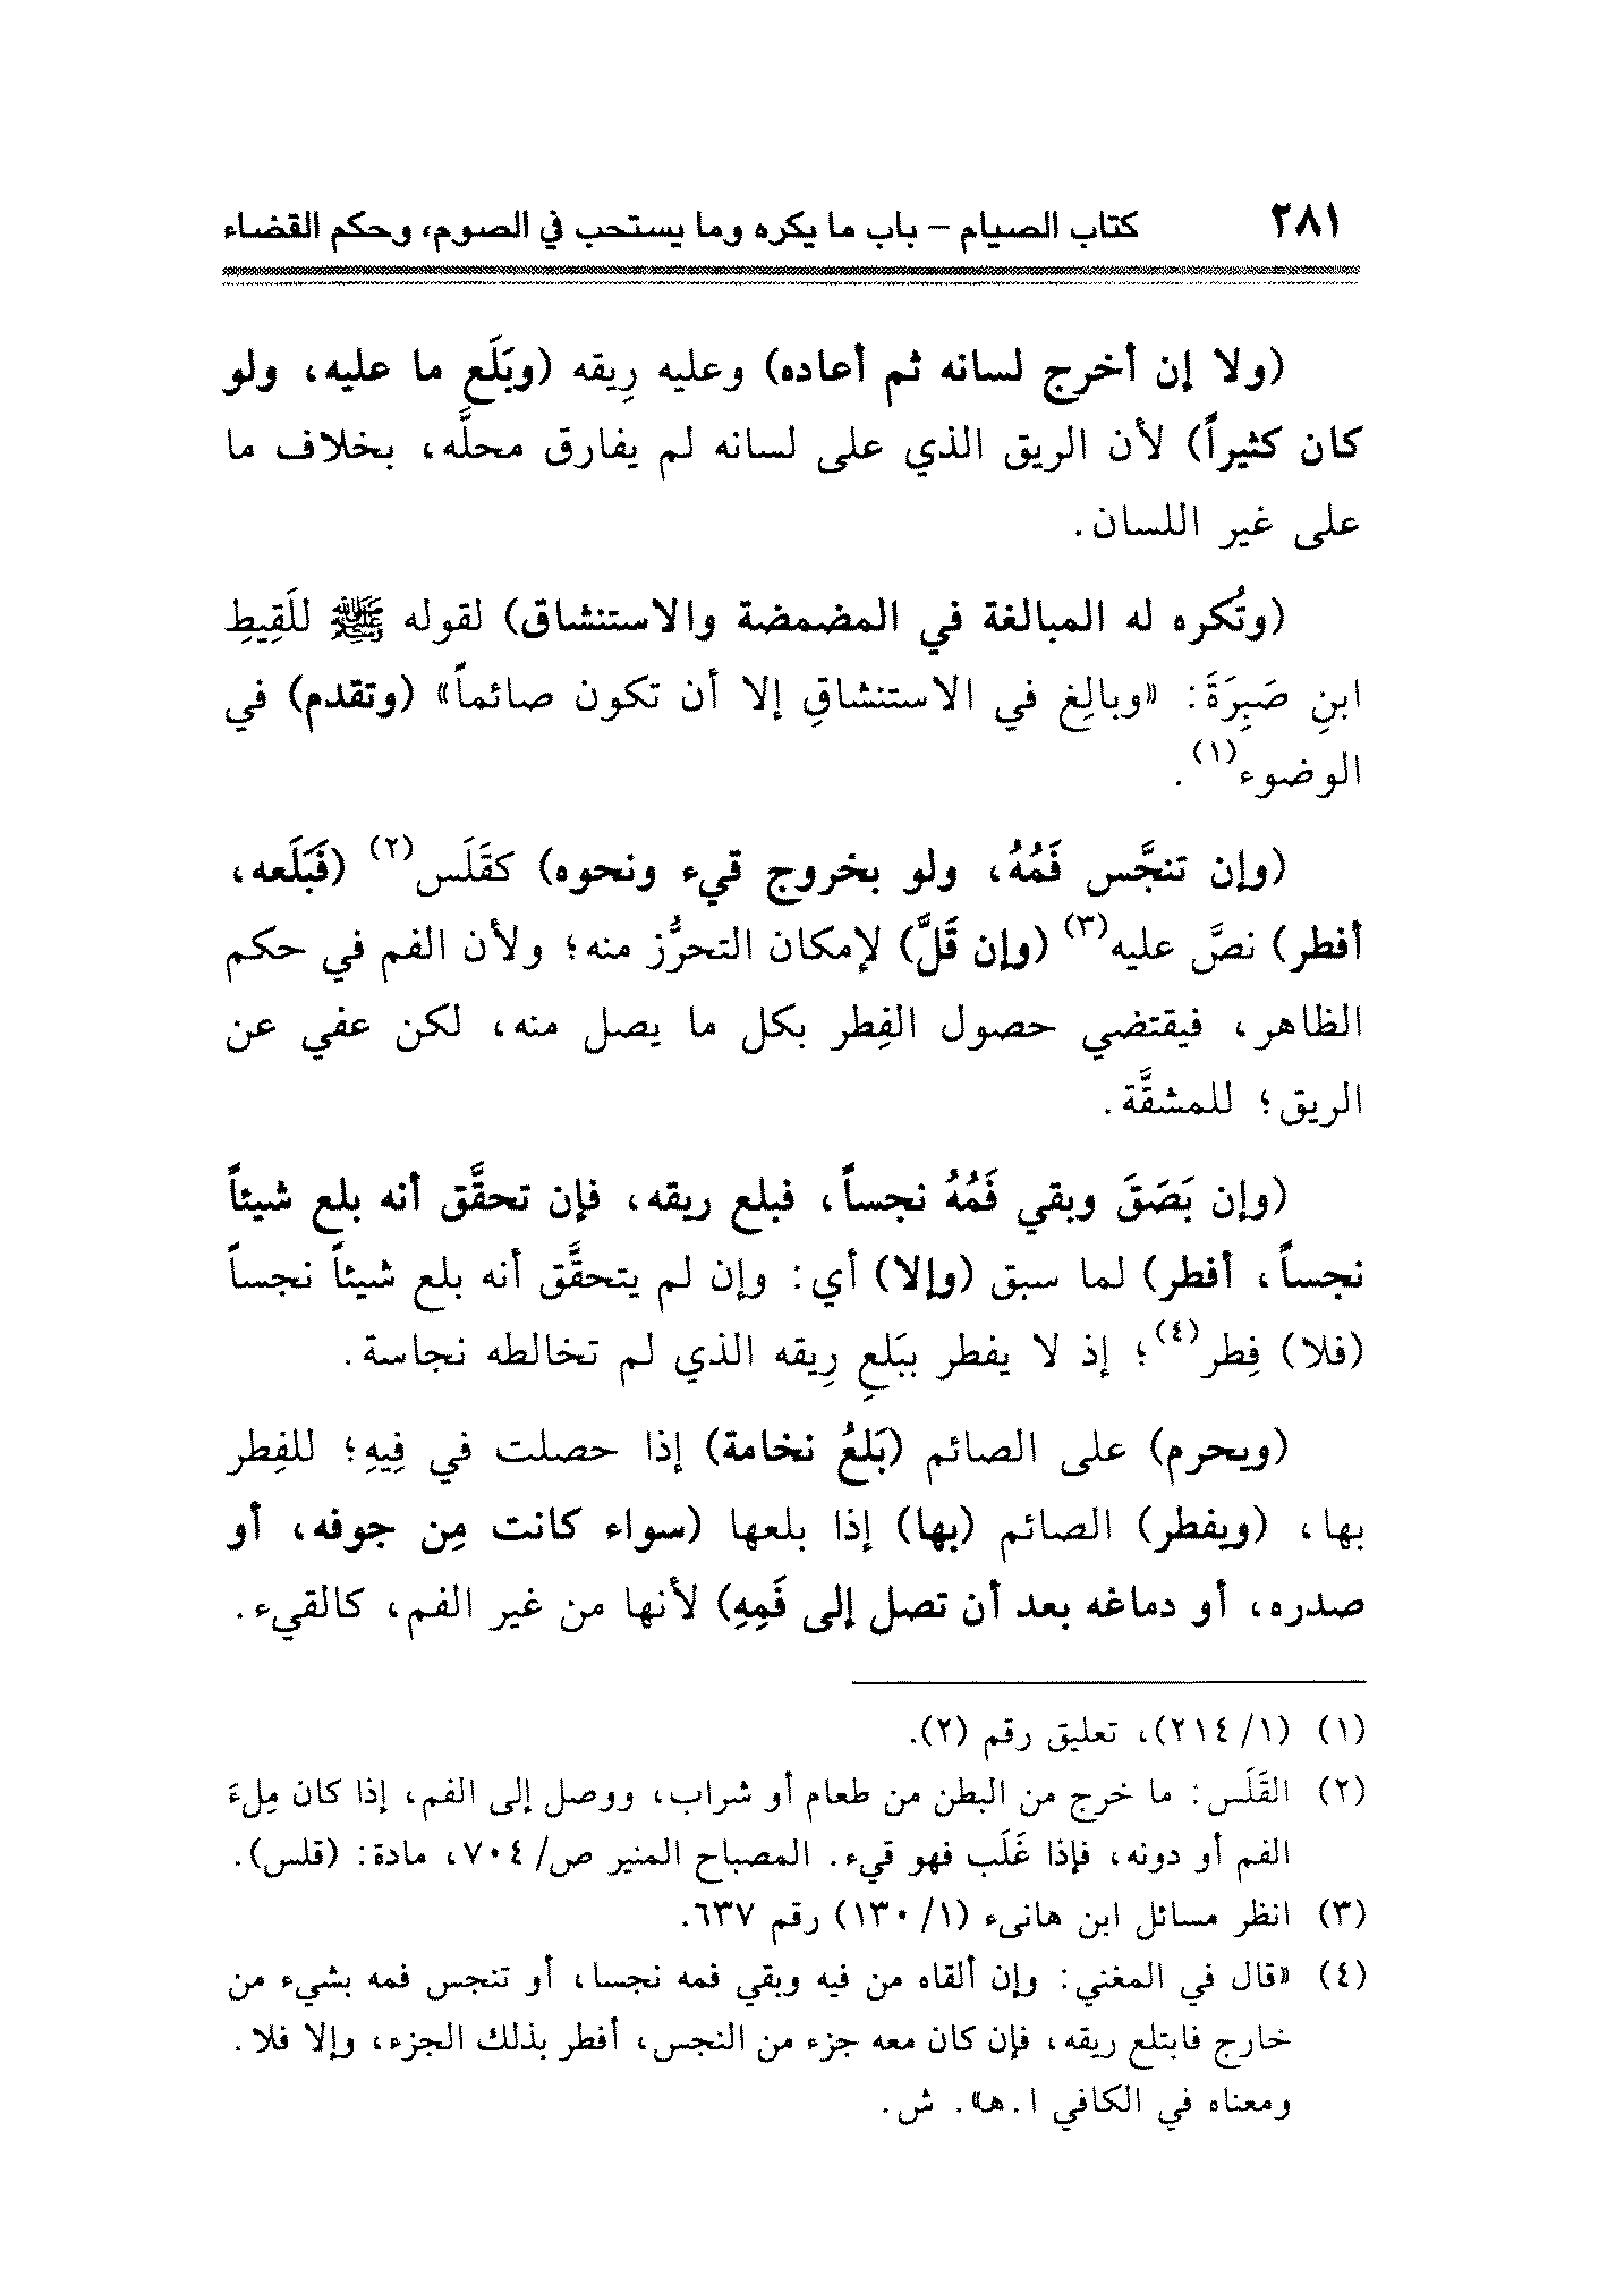 ٢٨١ كتاب الصيام – باب ما يكره وما يستحب في الصوم، وحكم القضاء
(ولا إن أخرج لسانه ثم أعاده) وعليه رِيقه (وبَلَع ما عليه، ولو
كان كثيراً) لأن الريق الذي على لسانه لم يفارق محلَّه، بخلاف ما
على غير اللسان.
(وتُكره له المبالغة في المضمضة والاستنشاق) لقوله ﷺ للَقِيطِ
ابنِ صَبِرَةَ: «وبالِغ في الاستنشاقِ إلا أن تكون صائماً» (وتقدم) في
الوضوء(١).
(وإن تنجَّس فَمُهُ، ولو بخروج قيء ونحوه) كقَلَس(٢) (فَبَلَعه،
أفطر) نصَّ عليه(٣) (وإن قَلَّ) لإمكان التحرُّز منه؛ ولأن الفم في حكم
الظاهر، فيقتضي حصول الفِطر بكل ما يصل منه، لكن عفي عن
الريق؛ للمشقَّة.
(وإن بَصَقَ وبقي فَمُهُ نجساً، فبلع ريقه، فإن تحقَّق أنه بلع شيئاً
نجساً، أفطر) لما سبق (وإلا) أي: وإن لم يتحقَّق أنه بلع شيئاً نجساً
(فلا) فِطر(٤)؛ إذ لا يفطر ببَلعِ رِيقه الذي لم تخالطه نجاسة.
(ويحرم) على الصائم (بَلعُ نخامة) إذا حصلت في فِيهِ؛ للفِطر
بها، (ويفطر) الصائم (بها) إذا بلعها (سواء كانت مِن جوفه، أو
صدره، أو دماغه بعد أن تصل إلى فَمِهِ) لأنها من غير الفم، كالقيء.
(١) (١/ ٢١٤)، تعليق رقم (٢).
(٢) القَلَس: ما خرج من البطن من طعام أو شراب، ووصل إلى الفم، إذا كان مِلءَ
الفم أو دونه، فإذا غَلَب فهو قيء. المصباح المنير ص/ ٧٠٤، مادة: (قلس).
(٣) انظر مسائل ابن هانىء (١/ ١٣٠) رقم ٦٣٧.
(٤) «قال في المغني: وإن ألقاه من فيه وبقي فمه نجسا، أو تنجس فمه بشيء من
خارج فابتلع ريقه، فإن كان معه جزء من النجس، أفطر بذلك الجزء، وإلا فلا.
ومعناه في الكافي ا.هـ». ش.